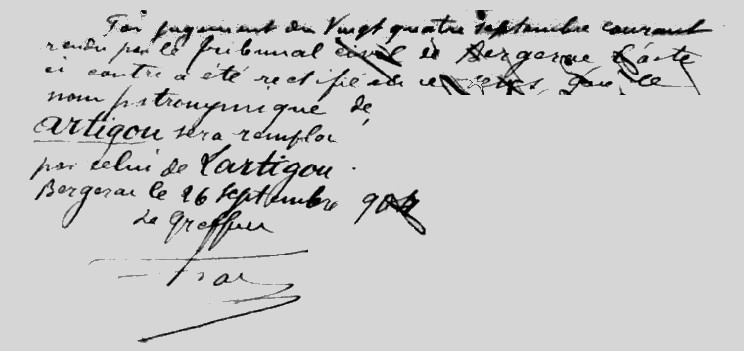 Par jugement du Vingt quatre septembre courant
rendu par le tribunal civil de Bergerac l'acte
ci contre a été rectifié en ce sens que le
nom patronymique de
Artigou sera remplac
par celui de Lartigou.
Bergerac le 26 Septembre 904
Le Greffier